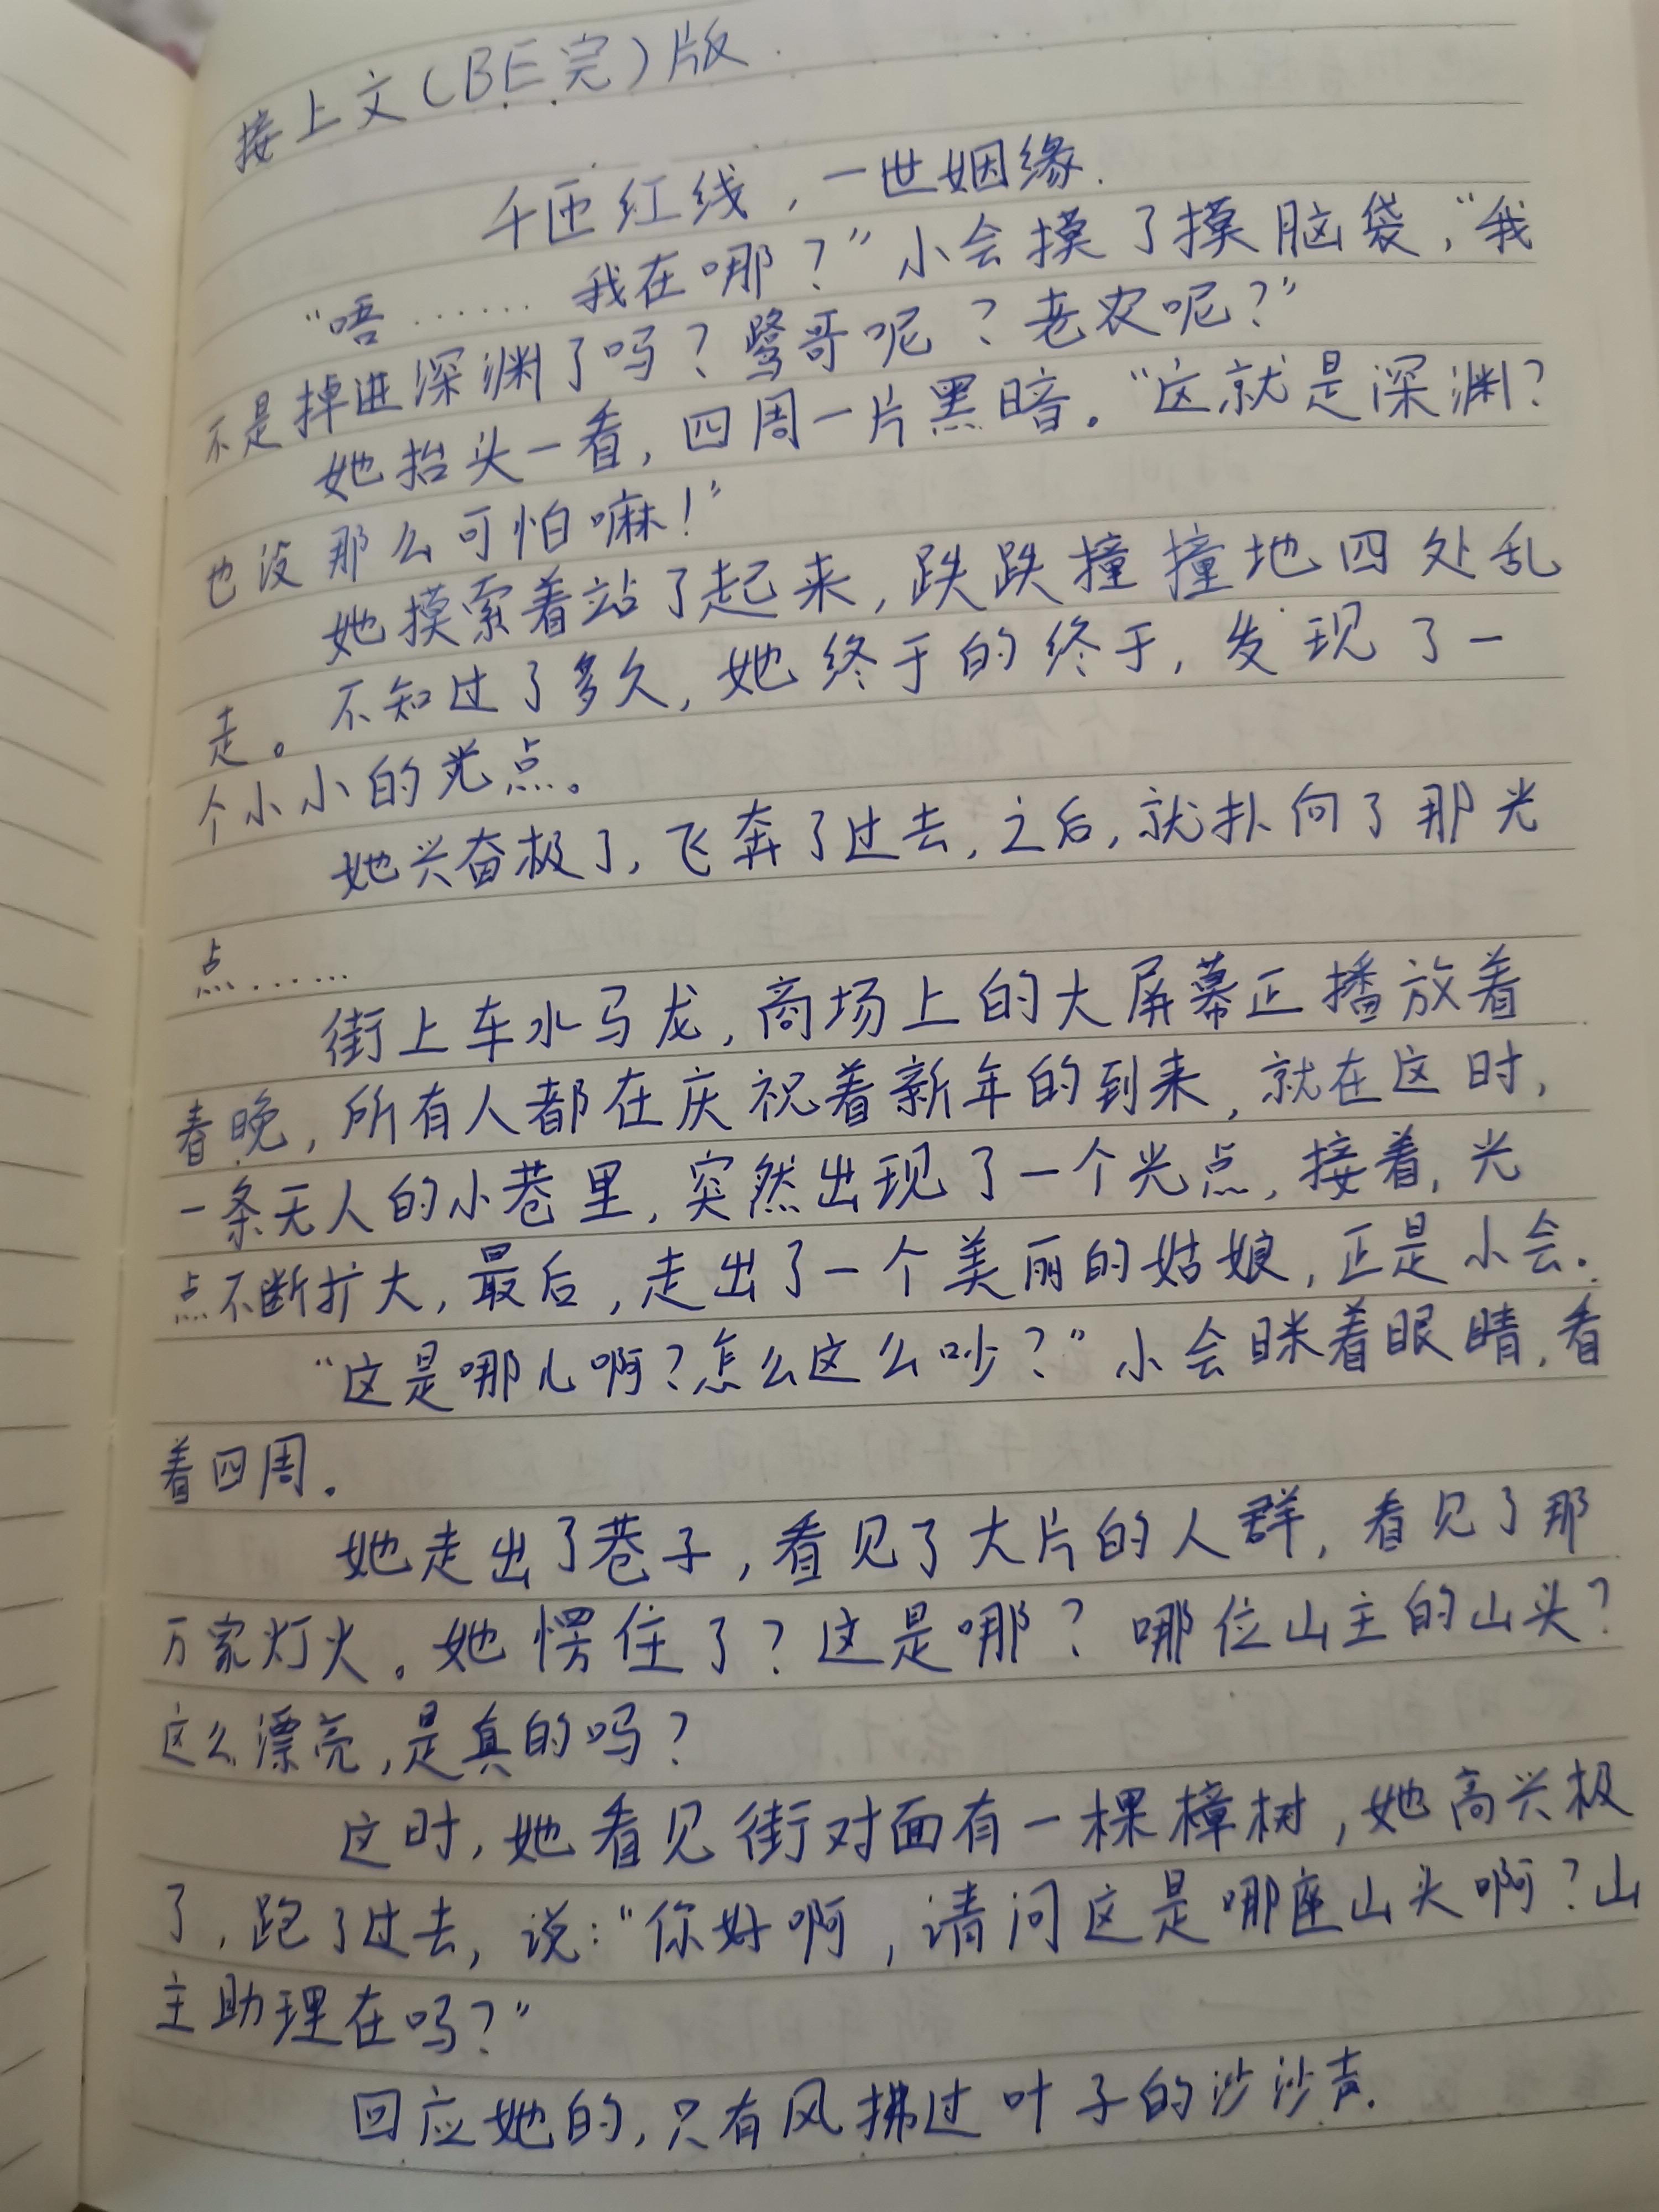 接上文(BE完)版
千匝红线，一世姻缘.
“唔……我在哪？”小会摸了摸脑袋，“我
不是掉进深渊了吗？鹭哥呢？老农呢？”
她抬头一看，四周一片黑暗。“这就是深渊？
也没那么可怕嘛！”
她摸索着站了起来，跌跌撞撞地四处乱
走。不知过了多久，她终于的终于，发现了一
个小小的光点。
她兴奋极了，飞奔了过去，之后，就扑向了那光
点……
街上车水马龙，商场上的大屏幕正播放着
春晚，所有人都在庆祝着新年的到来，就在这时，
一条无人的小巷里，突然出现了一个光点，接着，光
点不断扩大，最后，走出了一个美丽的姑娘，正是小会.
“这是哪儿啊？怎么这么吵？”小会眯着眼睛，看
着四周.
她走出了巷子，看见了大片的人群，看见了那
万家灯火。她愣住了？这是哪？哪位山主的山头？
这么漂亮，是真的吗？
这时，她看见街对面有一棵樟树，她高兴极
了，跑了过去，说：“你好啊，请问这是哪座山头啊？山
主助理在吗？”
回应她的，只有风拂过叶子的沙沙声.